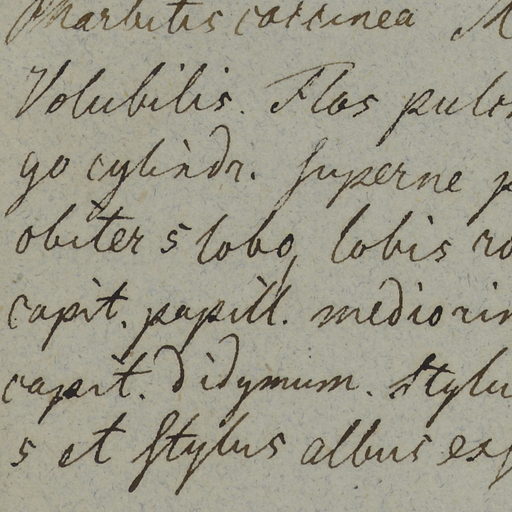 Pharbitis coccinea M
Volubilis. Flos pulch
go cylindr. superne p
obiter 5 lobo, lobis ro
capit. papill. mediorin
capit. didymum. Stylu
5 et Stylus albus exs